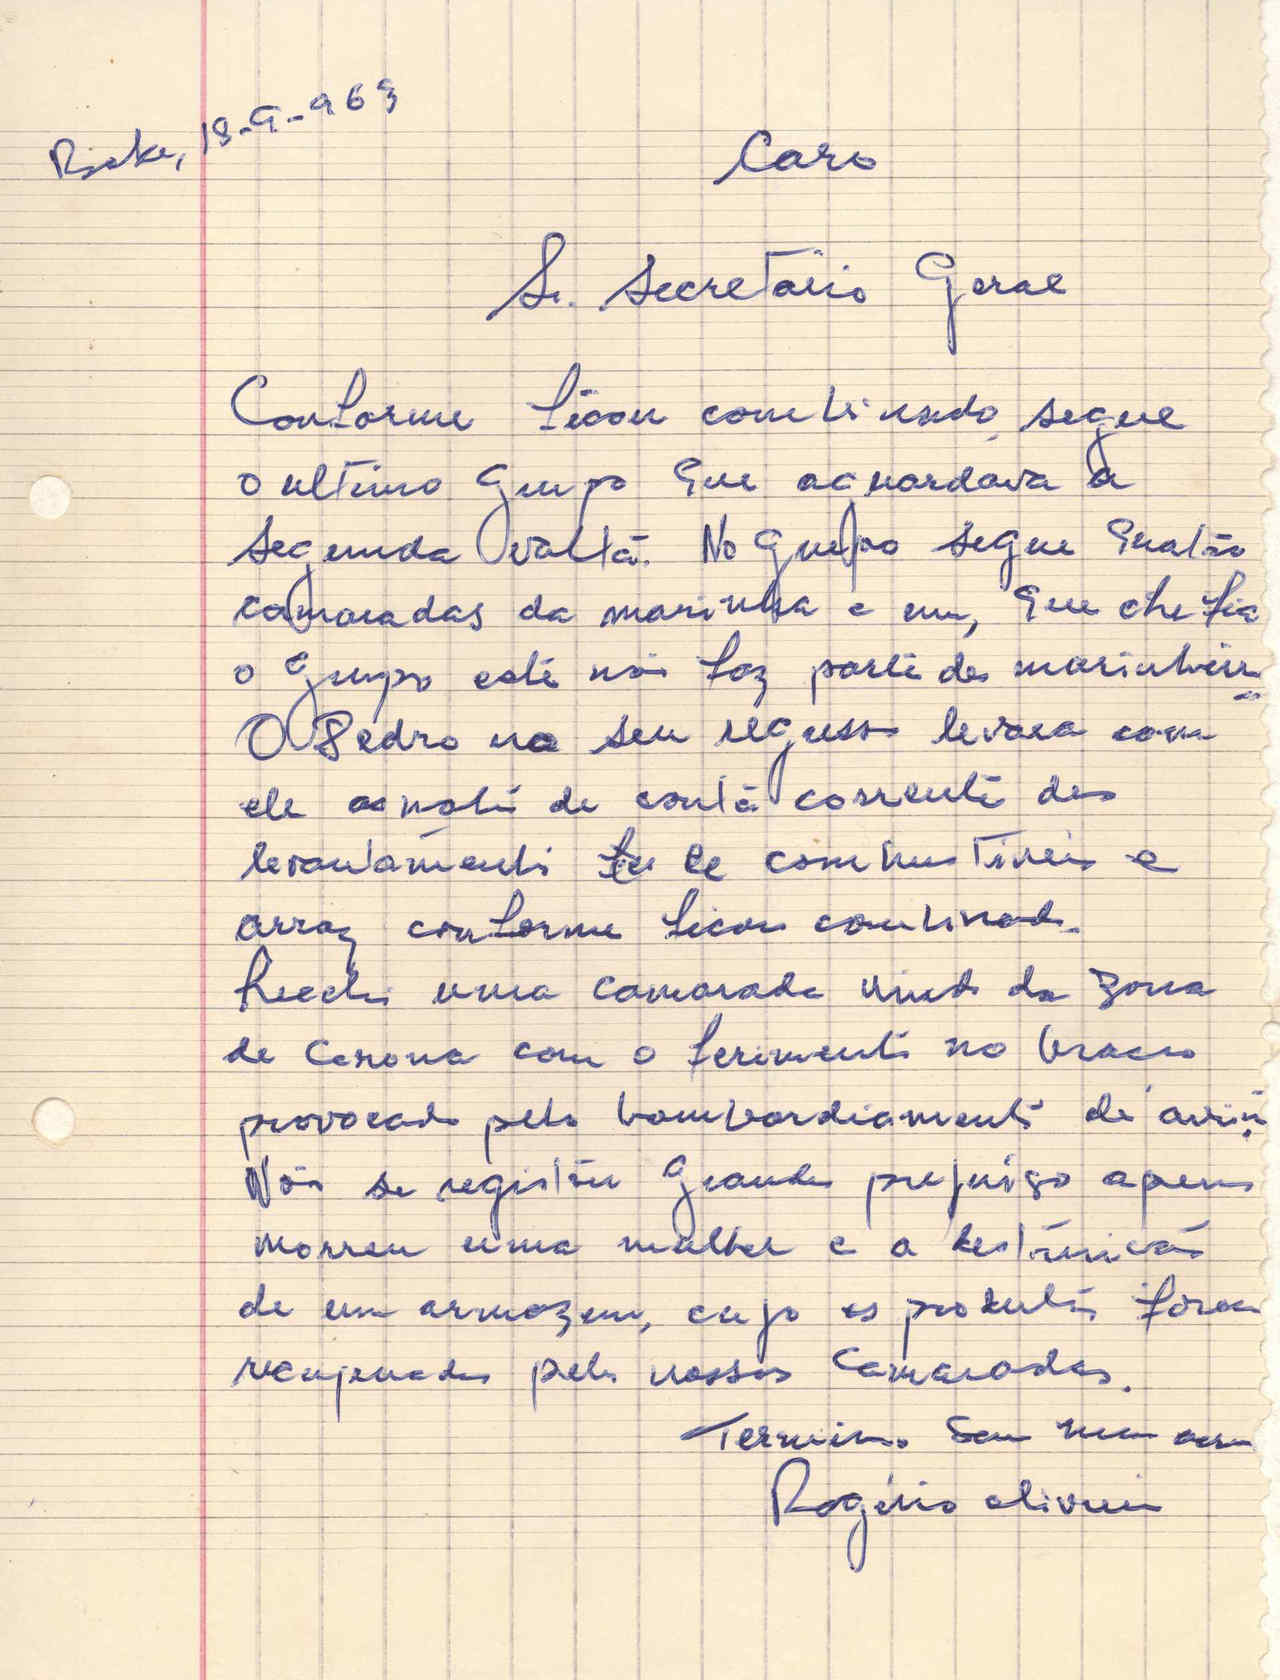 18-9-963
Caro
Sr. Secretário Geral
Conforme ficou combinado, segue
o ultimo grupo que aguardava a
segunda volta. No grupo segue quatro
camaradas da marinha e um, que chefia
o grupo este não faz parte dos marinheiros
O Pedro no seu regresso levara com
ele as nota de conta corrente dos
levantamento de combustiveis e
arroz conforme ficou combinado.
Recebi uma camarada vindo da zona
de Corona com o ferimento no braço
provocado pelo bombardiamento de avião.
Não se registou grandes prejuizo apenas
morreu uma mulher e a destruição
de um armazem, cujo os produtos foram
recuperados pelos nossos camaradas.
Termino sem
Rogério oliveira